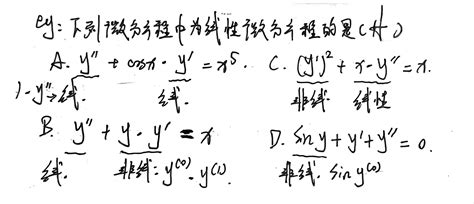 eg: 下列微分方程中为线性微分方程的是(A)
A. y'' + cosx · y' = x⁵. C. (y')² + x - y'' = x.
1·y''→线. 线. 非线. 线性
B. y'' + y · y' = x D. sin y + y' + y'' = 0.
线. 非线: y⁽⁰⁾ · y⁽¹⁾. 非线. sin y⁽⁰⁾